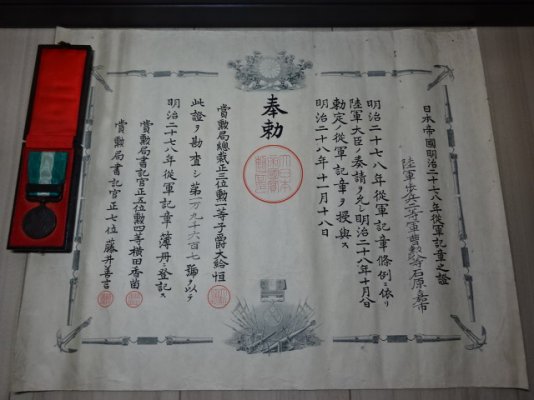 日本帝國明治二十七八年從軍記章之證
陸軍歩兵二等軍曹勲八等石原嘉市
明治二十七八年從軍記章條例ニ依リ
陸軍大臣ノ奏請ヲ允シ明治二十八年十月九日
勅定ノ從軍記章ヲ授與ス
明治二十八年十一月十八日
奉勅
賞勳局總裁正三位勳一等子爵大給恒
此證ヲ勘査シ第一万九千六百七號ヲ以テ
明治二十七八年從軍記章簿冊ニ登記ス
賞勳局書記官正五位勳四等横田香苗
賞勳局書記官正七位藤井善言